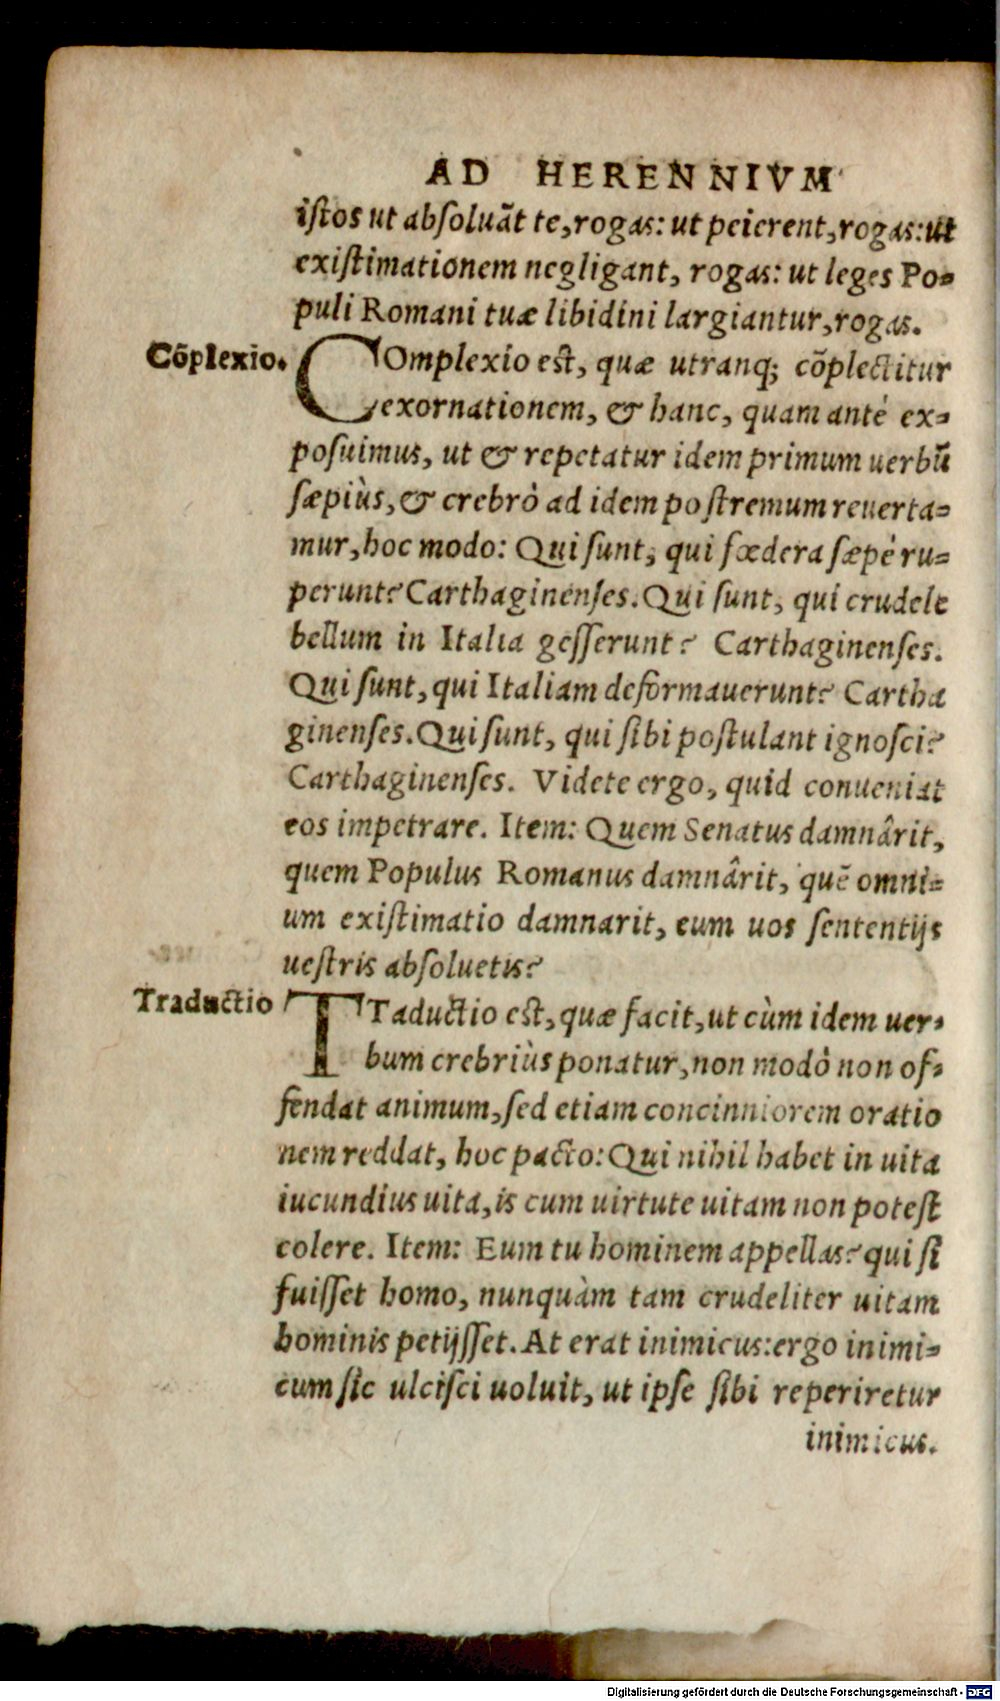 AD HERENNIVM
istos ut absoluāt te, rogas: ut peierent, rogas: ut
existimationem negligant, rogas: ut leges Po-
puli Romani tuæ libidini largiantur, rogas.
Cōplexio.
COmplexio est, quæ utranq; cōplectitur
exornationem, & hanc, quam antè ex-
posuimus, ut & repetatur idem primum uerbū
sæpiùs, & crebrò ad idem postremum reuerta-
mur, hoc modo: Qui sunt, qui fœdera sæpè ru-
perunt? Carthaginenses. Qui sunt, qui crudele
bellum in Italia gesserunt? Carthaginenses.
Qui sunt, qui Italiam deformauerunt? Cartha
ginenses. Qui sunt, qui sibi postulant ignosci?
Carthaginenses. Videte ergo, quid conueniat
eos impetrare. Item: Quem Senatus damnârit,
quem Populus Romanus damnârit, quē omni-
um existimatio damnarit, eum uos sententijs
uestris absoluetis?
Traductio
TTaductio est, quæ facit, ut cùm idem uer-
bum crebriùs ponatur, non modò non of-
fendat animum, sed etiam concinniorem oratio
nem reddat, hoc pacto: Qui nihil habet in uita
iucundius uita, is cum uirtute uitam non potest
colere. Item: Eum tu hominem appellas? qui si
fuisset homo, nunquàm tam crudeliter uitam
hominis petijsset. At erat inimicus: ergo inimi-
cum sic ulcisci uoluit, ut ipse sibi reperiretur
inimicus.
Digitalisierung gefördert durch die Deutsche Forschungsgemeinschaft - DFG